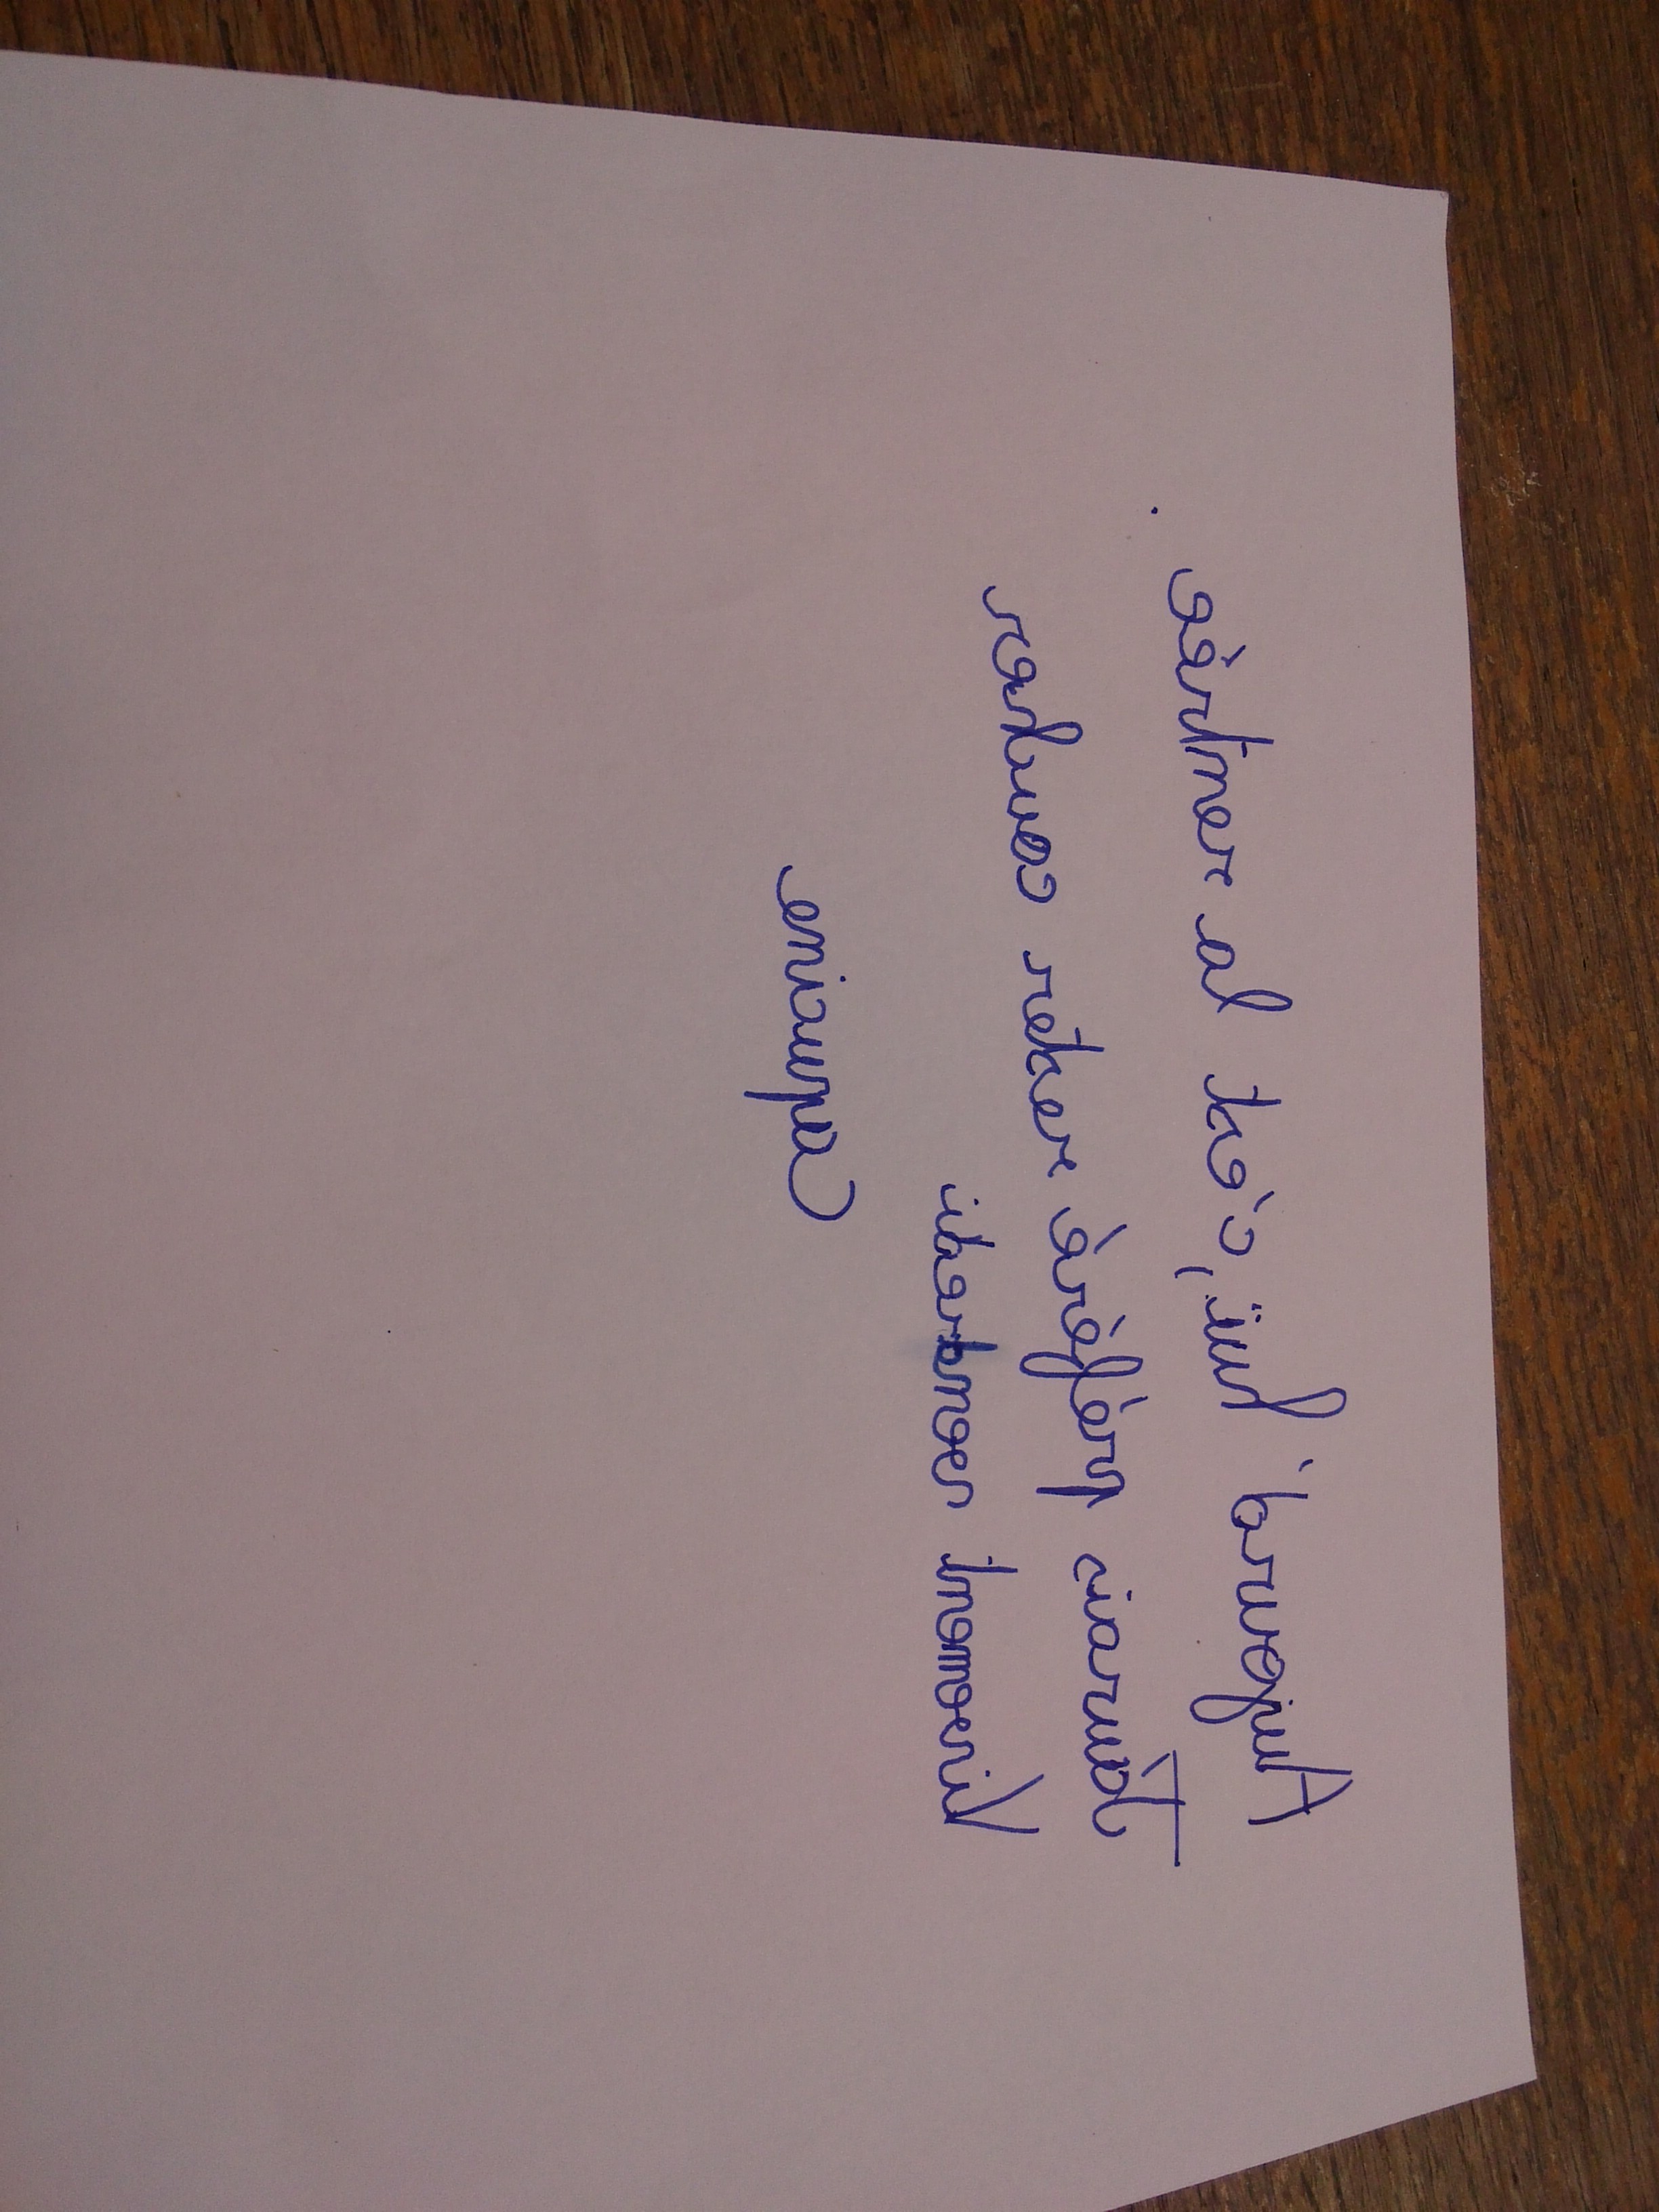 Aujourd'hui, c'est la rentrée.
J'aurais préféré rester coucher
Vivement vendredi
Capucine